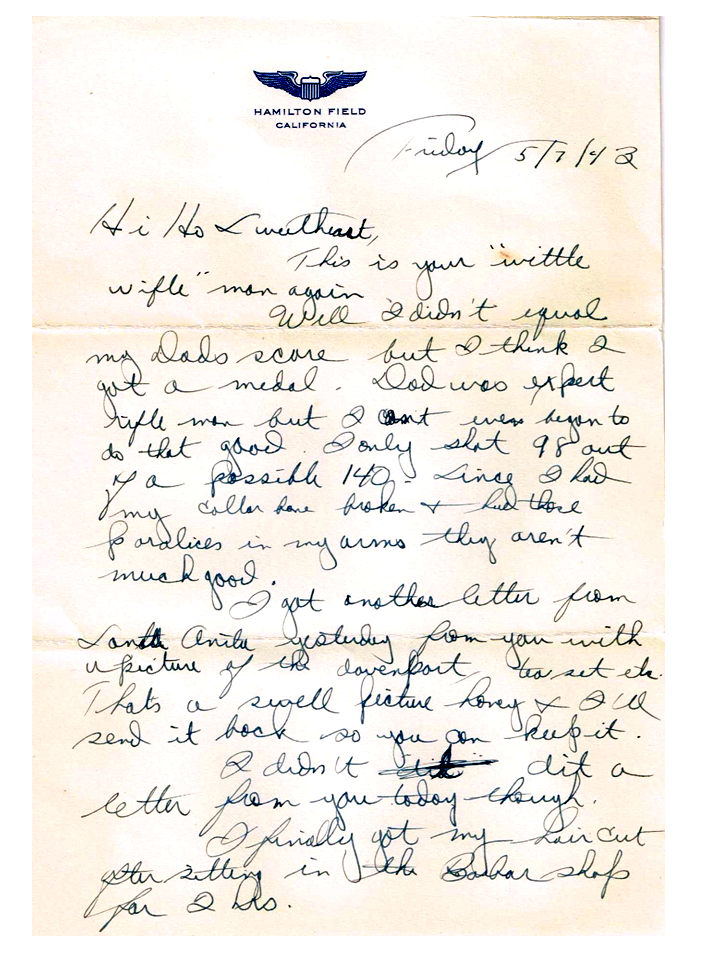 HAMILTON FIELD
CALIFORNIA
Friday 5/7/43
Hi Ho Sweetheart,
This is your "wittle
wifle" man again
Well I didn't equal
my Dads score but I think I
got a medal. Dad was expert
rifle man but I can't even began to
do that good. I only shot 98 out
of a possible 140. Since I had
my collar bone broken & had those
paralices in my arms they aren't
much good.
I got another letter from
Santa Anita yesterday from you with
a picture of the davenport, tea set etc.
Thats a swell picture honey & I'll
send it back so you can keep it.
I didn't dit a
letter from you today though.
I finally got my hair cut
after setting in the Barbar shop
for 2 hrs.